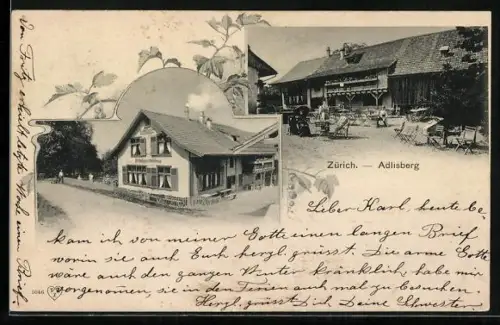 Zürich. — Adlisberg
Lieber Karl, heute be-
kam ich von meiner Gotte einen langen Brief
worin sie auch Euch herzl. grüsst. Die arme Gotte
wäre auch den ganzen Winter kränklich, habe mir
vorgenommen, sie in den Ferien auch mal zu besuchen.
Herzl. grüsst Dich, Deine Schwester
Von Fritz erhielt letzte Woche einen Brief.